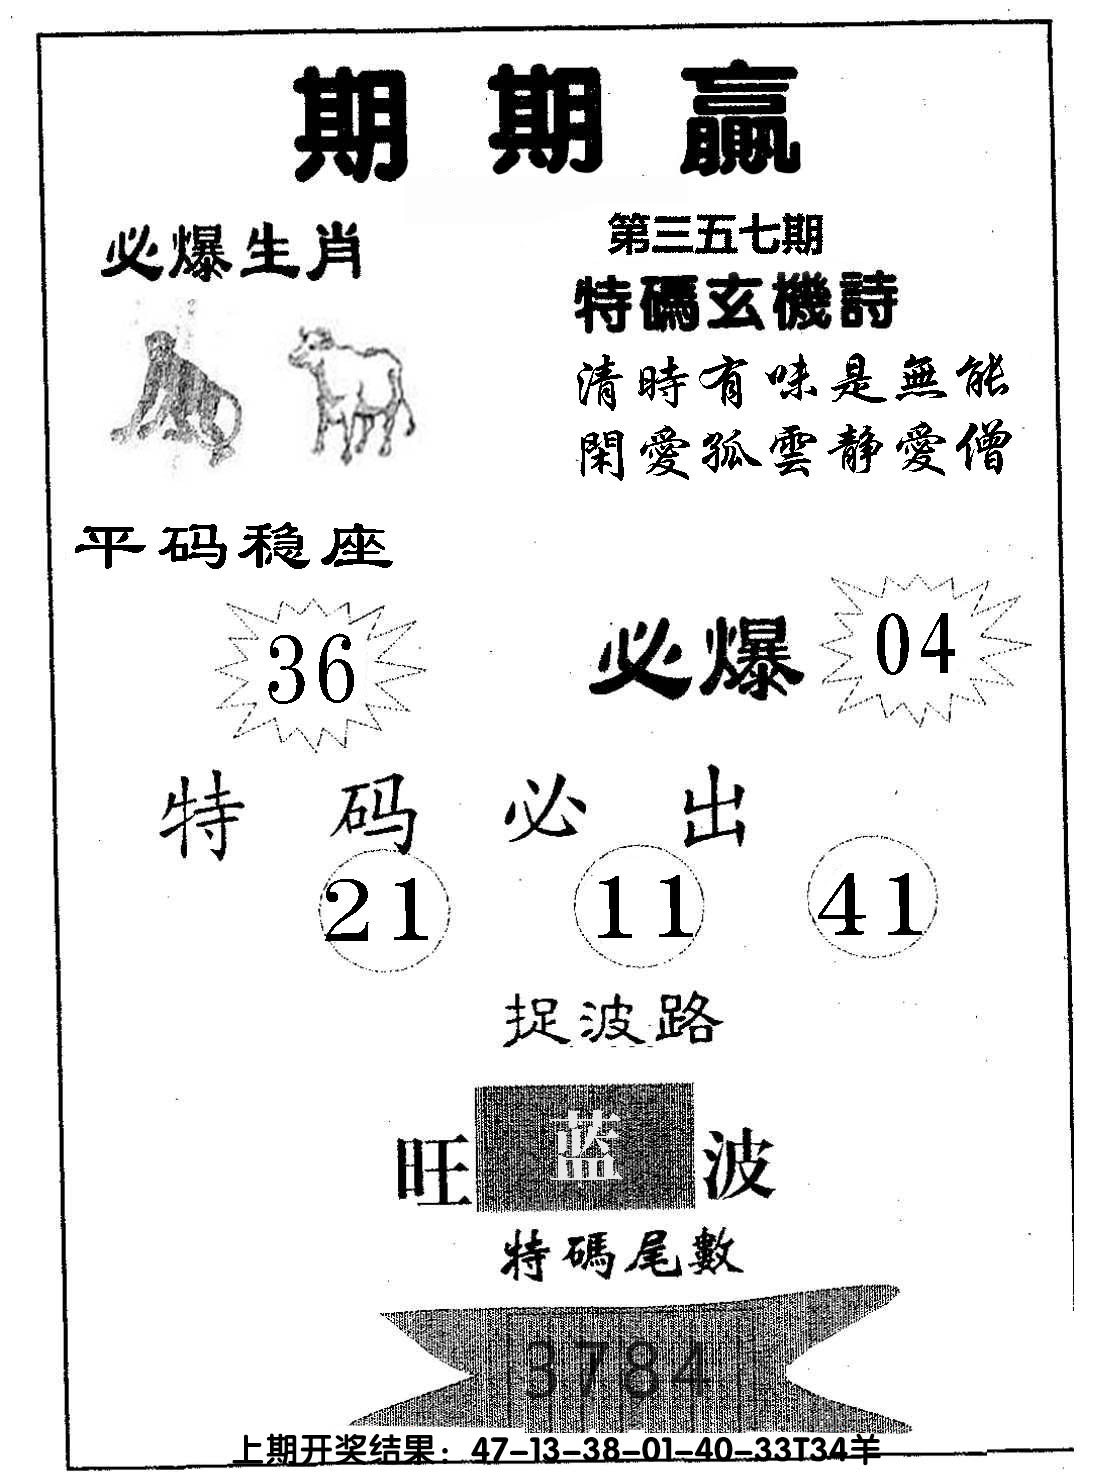 期期贏
必爆生肖
第三五七期
特碼玄機詩
清時有味是無能
閑愛孤雲静愛僧
平码稳座
36
必爆 04
特码必出
21 11 41
捉波路
旺蓝波
特碼尾數
3784
上期开奖结果：47-13-38-01-40-33T34羊